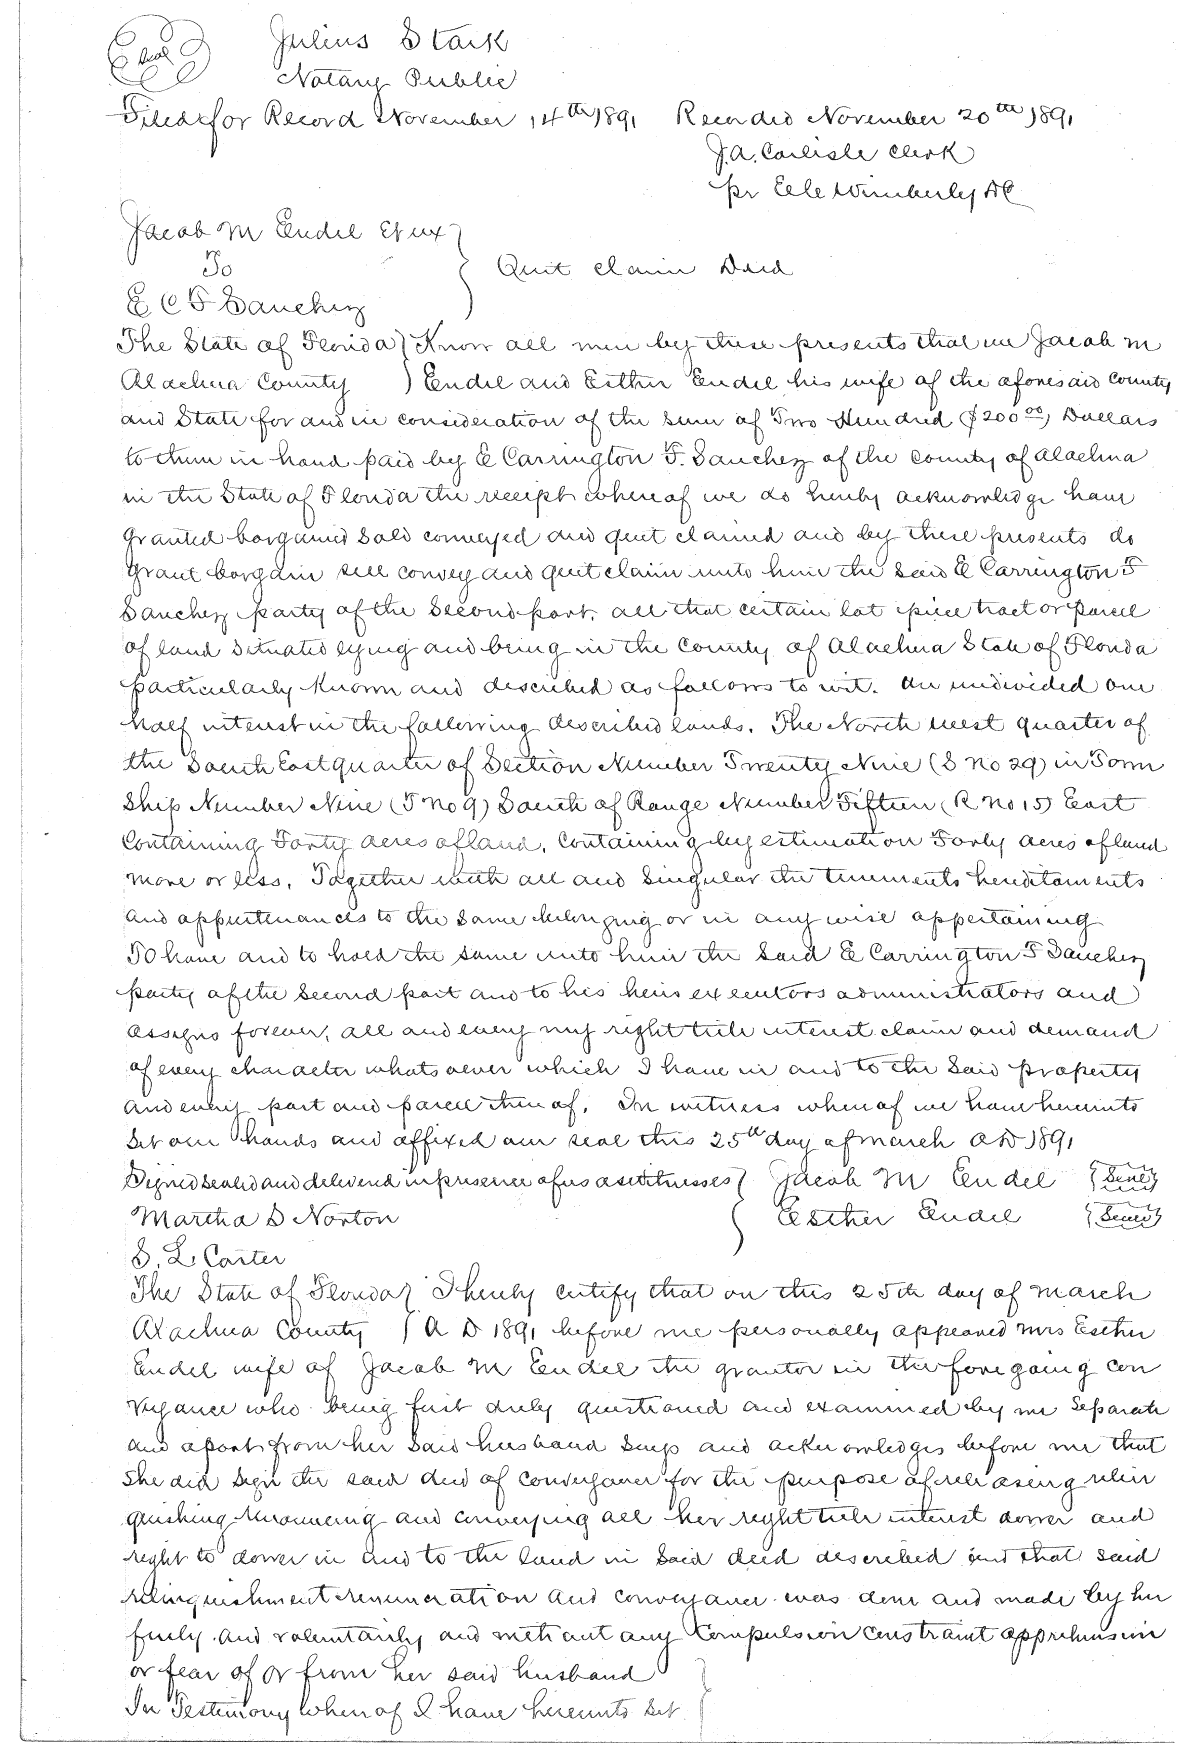 Seal Julius Stark
Notary Public
Filed for Record November 14th 1891 Recorded November 20th 1891
J.A. Carlisle Clerk
pr Wimberly DC
Jacob M Endel et ux
To
Quit Claim Deed
E C F Sanchez
The State of Florida } Know all men by these presents that we Jacob M
Alachua County } Endel and Esther Endel his wife of the aforesaid County
and State for and in consideration of the sum of Two Hundred ($200.00) Dollars
to them in hand paid by E Carrington F. Sanchez of the County of Alachua
in the State of Florida the receipt whereof we do hereby acknowledge have
granted bargained sold conveyed and quit claimed and by these presents do
grant bargain sell convey and quit claim unto him the said E Carrington F
Sanchez party of the second part. all that certain lot piece tract or parcel
of land situated lying and being in the County of Alachua State of Florida
particularly known and described as follows to wit. An undivided one
half interest in the following described lands. The North west quarter of
the South East quarter of Section Number Twenty Nine (S no 29) in Town
Ship Number Nine (T no 9) South of Range Number Fifteen (R no 15) East
Containing Forty acres of land. Containing by estimation Forty acres of land
more or less. Together with all and singular the tenements hereditaments
and appurtenances to the same belonging or in any wise appertaining
To have and to hold the same unto him the said E Carrington F Sanchez
party of the second part and to his heirs executors administrators and
assigns forever, all and every my right title interest claim and demand
of every character whatsoever which I have in and to the said property
and every part and parcel thereof. In witness whereof we have hereunto
set our hands and affixed our seal this 25th day of March AD 1891
Signed sealed and delivered in presence of us as witnesses } Jacob M Endel {Seal}
Martha D Norton } Esther Endel {Seal}
S. L. Carter
The State of Florida } I hereby certify that on this 25th day of March
Alachua County } A D 1891 before me personally appeared Mrs Esther
Endel wife of Jacob M Endel the grantor in the foregoing con
veyance who being first duly questioned and examined by me separate
and apart from her said husband says and acknowledges before me that
she did sign the said deed of conveyance for the purpose of releasing relin
quishing renouncing and conveying all her right title interest dower and
right to dower in and to the land in said deed described and that said
relinquishment renunciation and conveyance was done and made by her
freely and voluntarily and without any compulsion constraint apprehension
or fear of or from her said husband
In Testimony whereof I have hereunto set